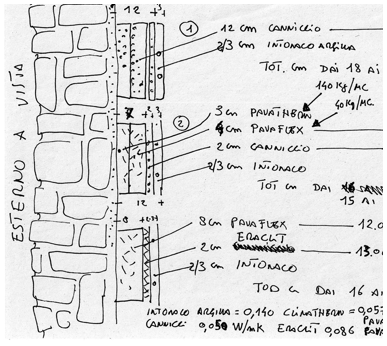 12 +3+
① 12 cm CANNICCIO
2/3 cm INTONACO ARGILLA
TOT. cm DAI 18 AI
140 Kg/MC
40 Kg/MC
② 3 cm PAVATHERM
4 cm PAVAFLEX
2 cm CANNICCIO
2/3 cm INTONACO
TOT cm DAI
15 AI
12
8 cm PAVAFLEX 12.0
ERACLIT
2 cm 13.0
2/3 cm INTONACO
TOT cm DAI 16 AI
ESTERNO A VISTA
INTONACO ARGILLA = 0,140 CLIMATHERM = 0,057
CANNICCI 0,056 W/mK ERACLIT 0,086